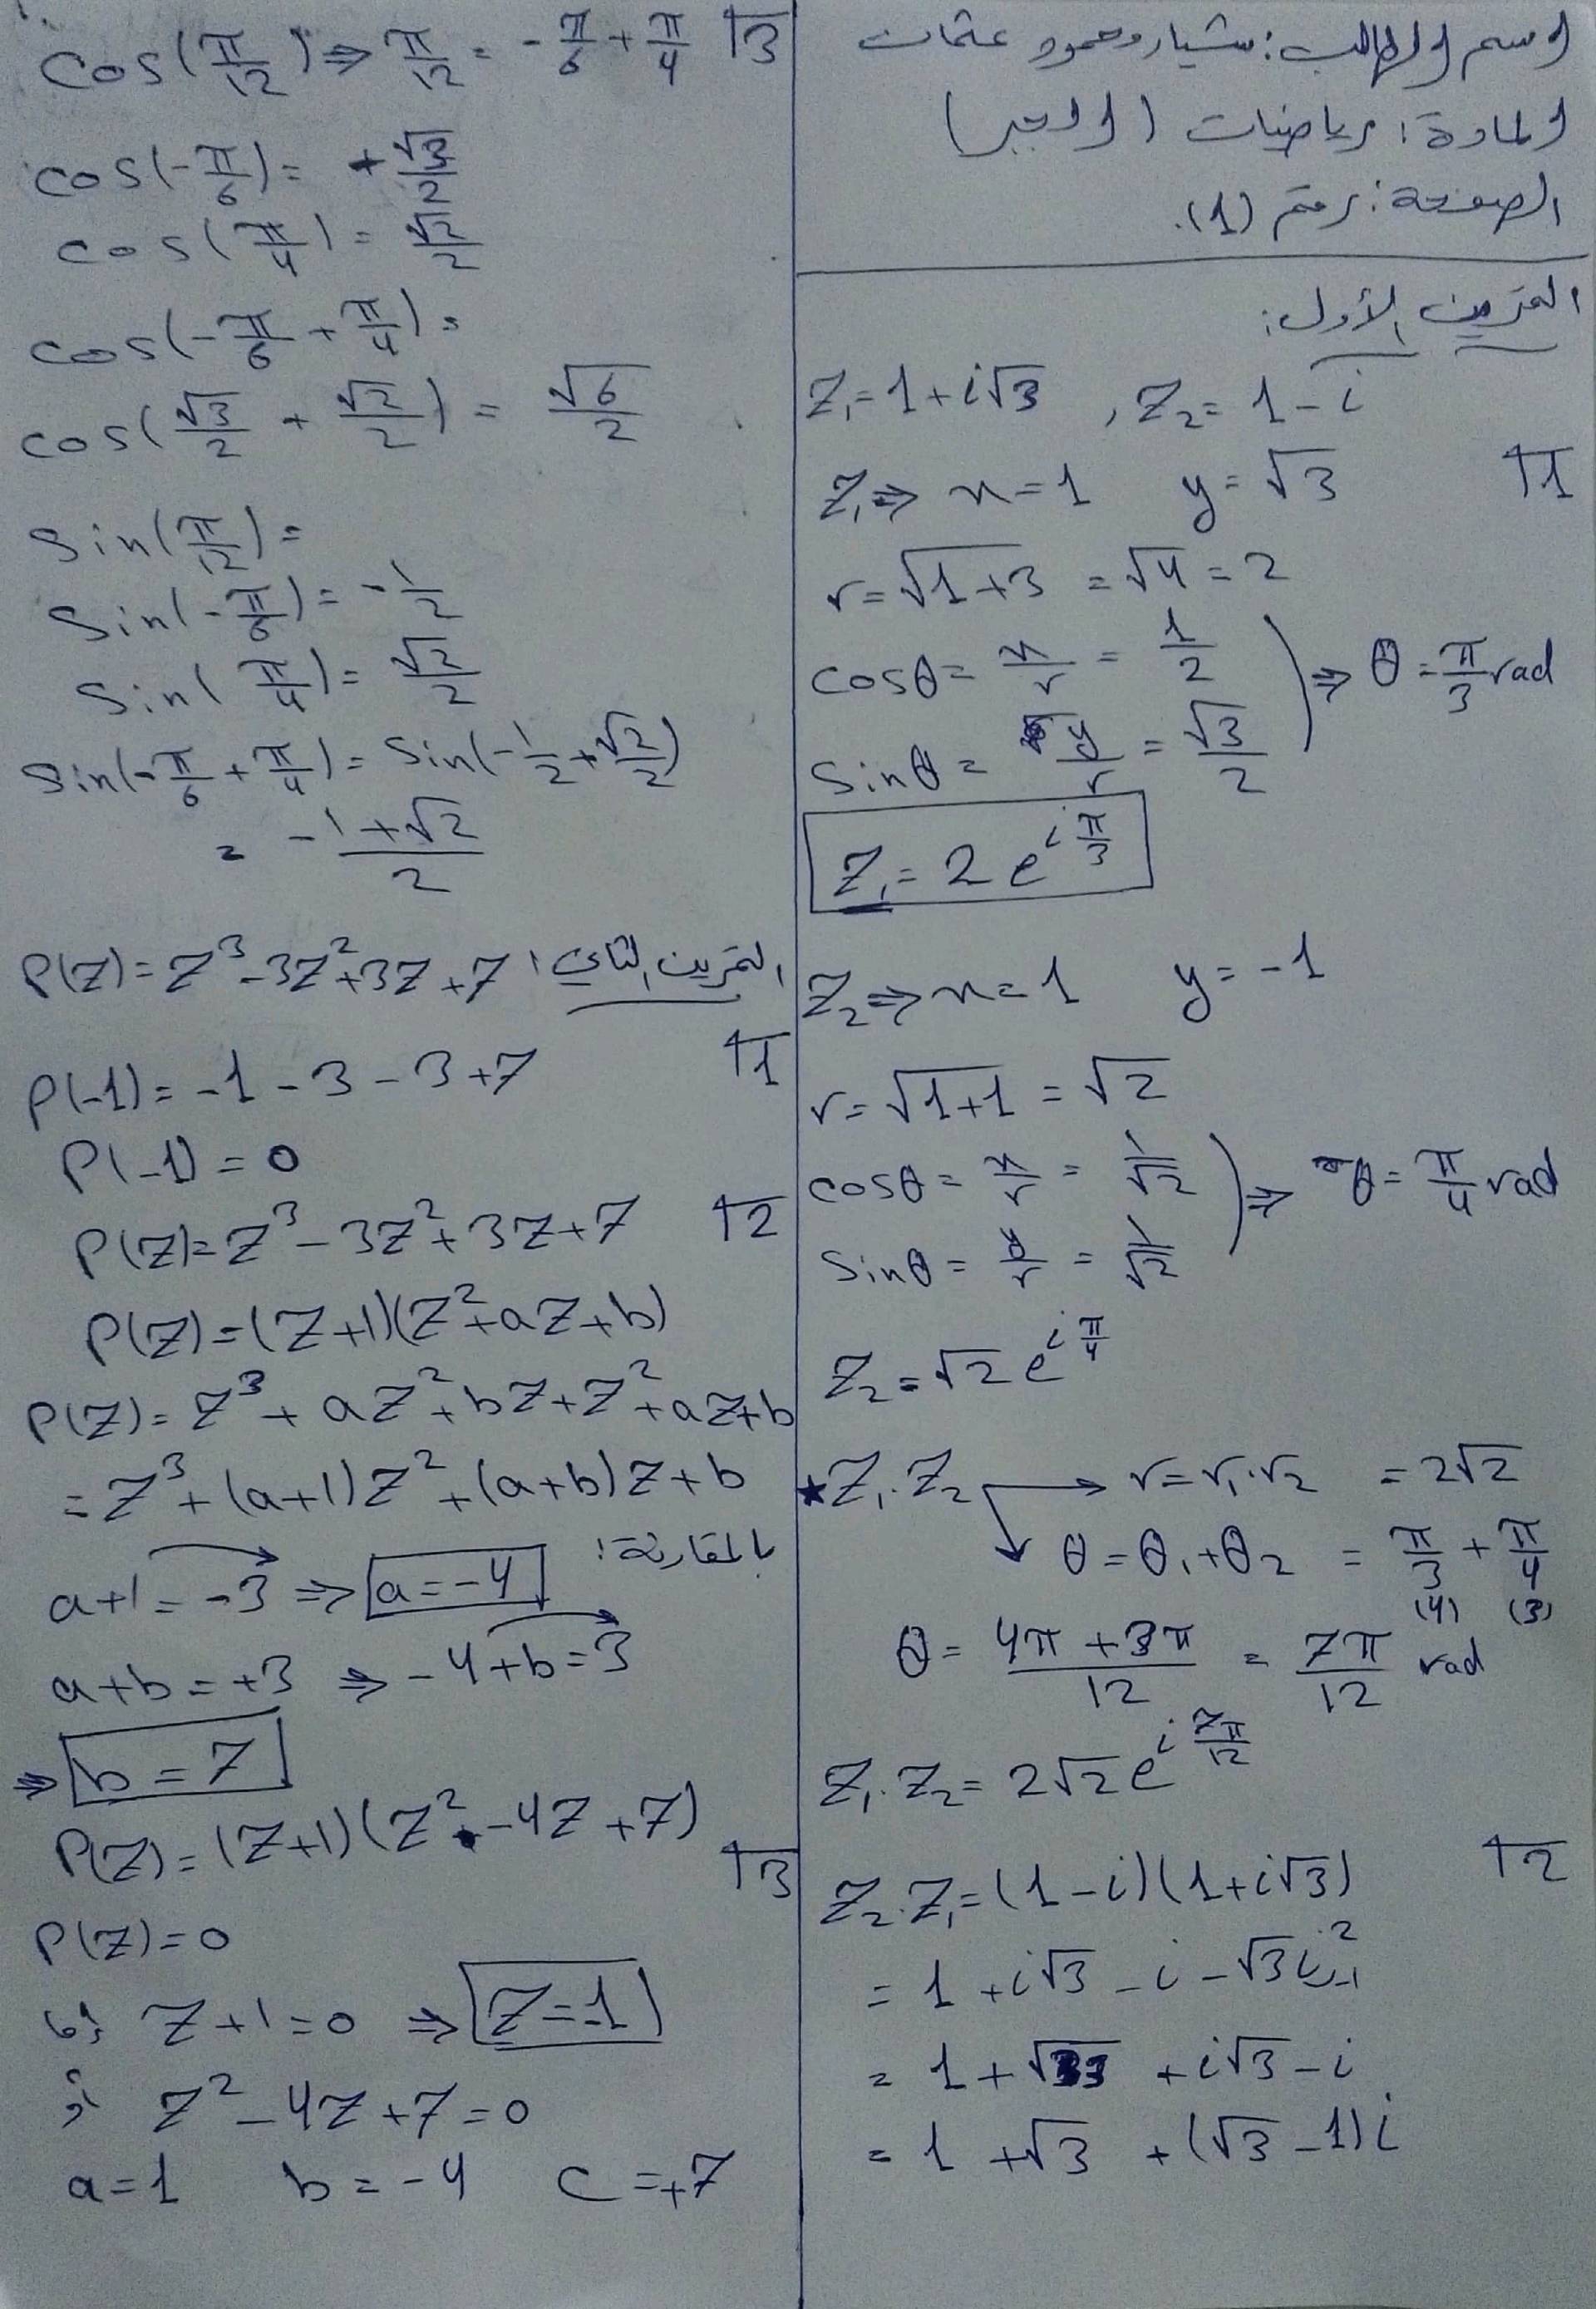 اسم الطالب: بشار محمود عثمان
المادة: رياضيات (الجبر)
الصفحة: رقم (1).
التمرين الأول:
Z₁=1+i√3 , Z₂= 1-i
1
Z₁⇒ x=1 y=√3
r=√1+3 = √4 = 2
cosθ= x/r = 1/2
sinθ= y/r = √3/2
⇒ θ = π/3 rad
Z₁= 2e^(iπ/3)
Z₂⇒ x=1 y=-1
r=√1+1 = √2
cosθ= x/r = 1/√2
sinθ= y/r = 1/√2
⇒ θ= π/4 rad
Z₂=√2 e^(iπ/4)
★Z₁.Z₂ → r=r₁.r₂ = 2√2
θ=θ₁+θ₂ = π/3 + π/4
(4) (3)
θ= (4π+3π)/12 = 7π/12 rad
Z₁.Z₂= 2√2 e^(i7π/12)
2
Z₂.Z₁=(1-i)(1+i√3)
= 1+i√3-i-√3i² -1
= 1+√3 +i√3-i
= 1+√3 +(√3-1)i
3
cos(π/12)⇒ π/12 = -π/6 + π/4
cos(-π/6)= +√3/2
cos(π/4)= √2/2
cos(-π/6 + π/4)=
cos(√3/2 + √2/2) = √6/2
sin(π/12)=
sin(-π/6)= -1/2
sin(π/4)= √2/2
sin(-π/6 + π/4)= sin(-1/2 + √2/2)
= (-1+√2)/2
التمرين الثاني: P(Z)=Z³-3Z²+3Z+7
1
P(-1)= -1-3-3+7
P(-1)=0
2
P(Z)=Z³-3Z²+3Z+7
P(Z)=(Z+1)(Z²+aZ+b)
P(Z)=Z³+aZ²+bZ+Z²+aZ+b
=Z³+(a+1)Z²+(a+b)Z+b
بالمقارنة:
a+1=-3 ⇒ a=-4
a+b=+3 ⇒ -4+b=3
⇒ b=7
P(Z)=(Z+1)(Z²-4Z+7)
3
P(Z)=0
إما Z+1=0 ⇒ Z=-1
أو Z²-4Z+7=0
a=1 b=-4 c=+7